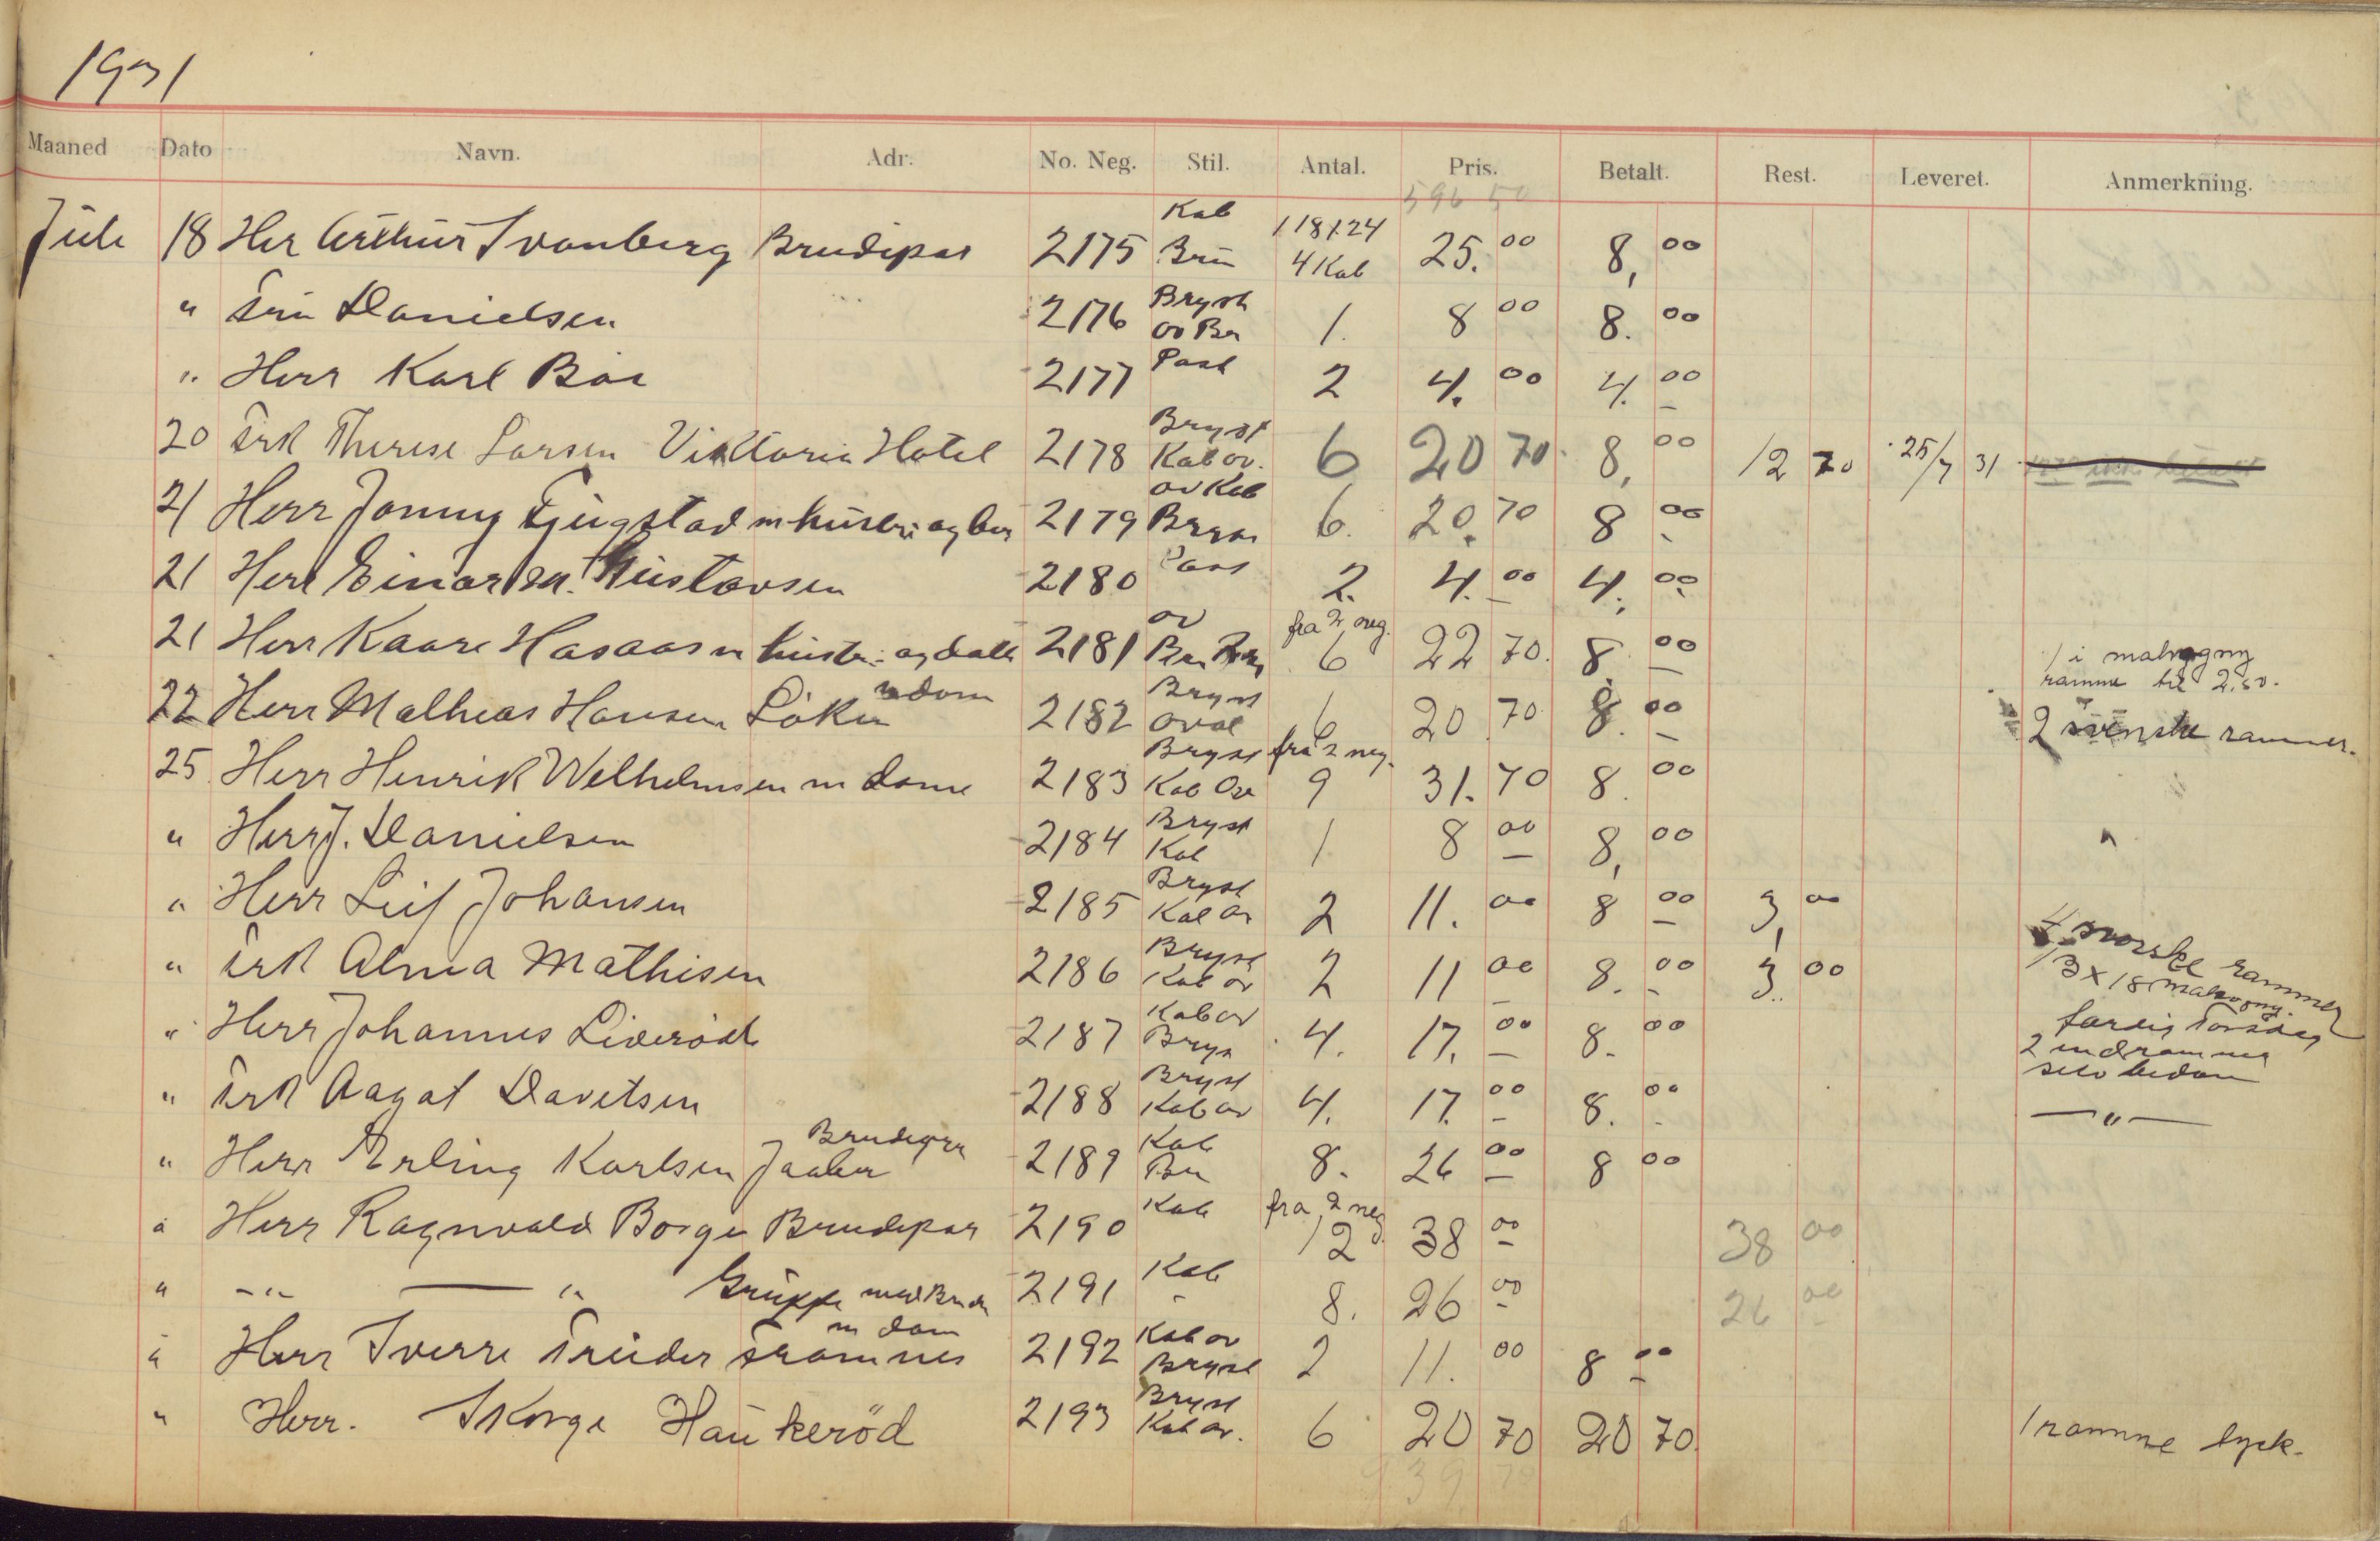 1931
Maaned Dato Navn. Adr. No. Neg. Stil. Antal. Pris. Betalt. Rest. Leveret. Anmerkning.
596 50
Juli 18 Her Arthur Svanberg Brudepar 2175 Kab Brü 1 18x24 4 Kab 25. 00 8, 00
" Frü Danielsen 2176 Bryst ov Br 1. 8 00 8. 00
" Herr Karl Bör 2177 Post 2 4. 00 4. 00
20 Frk Therese Larsen Viktoria Hotel 2178 Bryst Kab ov. 6 20 70 8, 00 12 70 25/7 31
21 Herr Jonny Fjugstad m hustru og barn 2179 ov Kab Bryst 6. 20. 70 8 00
21 Herr Einar M. Gustavsen 2180 Post 2. 4. 00 4. 00
21 Herr Kaare Hasaas m hustr. og datt 2181 ov fra 2 neg. 6 22 70. 8. 00 1 i mahogny ramme til 2.50.
22 Herr Mathias Hansen Löken m dam 2182 Bryst oval 6 20 70 8. 00 2 svenske rammer.
25. Herr Henrik Welhelmsen m dame 2183 Bryst Kab Ov fra 2 neg. 9 31. 70 8. 00
" Herr J. Danielsen 2184 Bryst Kab 1 8 00 8, 00
" Herr Leif Johansen 2185 Bryst Kab ov 2 11. 00 8 00 3, 00
" Frk Alma Mathisen 2186 Bryst Kab ov 2 11 00 8. 00 3. 00 4 norske rammer
" Herr Johannes Liveröd 2187 Kab ov Bryst 4. 17. 00 8. 00 13x18 mahogny. færdig Torsdag
" Frk Aagot Davitsen 2188 Bryst Kab ov 4. 17. 00 8. 00 2 indramme selv
— " —
" Herr Erling Karlsen Jaaber Brudepar 2189 Kab Br 8. 26 00 8 00
" Herr Ragnvald Borge Brudepar 2190 Kab fra 2 neg. 12 38 00 38 00
" — " — " Gruppe med Brude 2191 Kab 8. 26 00 26 00
" Herr Sverre Treider Framnes m dam 2192 Kab ov Bryst 2 11. 00 8 00
" Herr. Skorge Haukeröd 2193 Bryst Kab ov. 6 20 70 20 70. 1 ramme
939 70